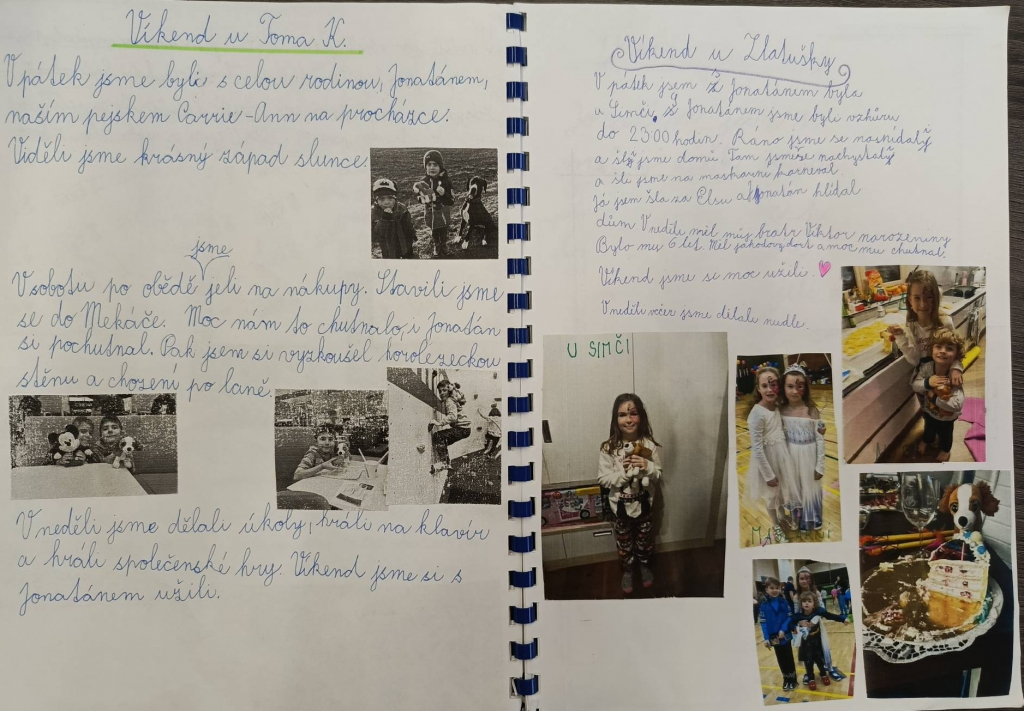 Víkend u Toma K.
V pátek jsme byli s celou rodinou, Jonatánem,
naším pejskem Carrie-Ann na procházce.
Viděli jsme krásný západ slunce.
jsme
V sobotu po obědě jeli na nákupy. Stavili jsme
se do Mekáče. Moc nám to chutnalo, i Jonatán
si pochutnal. Pak jsem si vyzkoušel horolezeckou
stěnu a chození po laně.
V neděli jsme dělali úkoly, hráli na klavír
a hráli společenské hry. Víkend jsme si s
Jonatánem užili.
Víkend u Zlatušky
V pátek jsem s Jonatánem byla
u Simči, s Jonatánem jsme byli vzhůru
do 23:00 hodin. Ráno jsme se nasnídaly
a šly jsme domů Tam jsme se nachystaly
a šli jsme na maškarní karneval.
Já jsem šla za Elsu a Jonatán hlídal
dům V neděli měl můj bratr Viktor narozeniny
Bylo mu 6 let. Měl jahodový dort a moc mu chutnal.
Víkend jsme si moc užili.
V neděli večer jsme dělali nudle.
U SIMČI